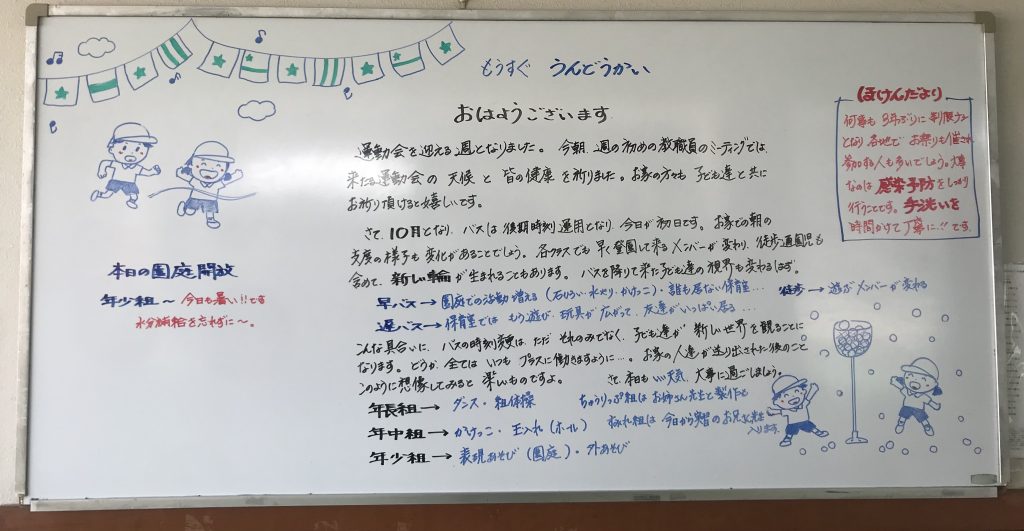 もうすぐ うんどうかい
おはようございます
運動会を迎える週となりました。今朝、週の初めの教職員のミーティングでは、
来たる運動会の 天候 と 皆の健康 を祈りました。お家の方々も 子ども達と共に
お祈り頂けると嬉しいです。
さて、10月となり、バスは後期時刻運用となり、今日が初日です。お家での朝の
支度の様子も変化があることでしょう。各クラスでも 早く登園して来る メンバーが変わり、徒歩通園児も
含めて、新しい輪が生まれることもあります。バスを降りて来た子ども達の視界も変わるはず。
早バス→園庭での活動増える(石ひろい・水やり・かけっこ)・誰も居ない保育室… 徒歩→遊ぶメンバーが変わる
遅バス→保育室では もう遊び、玩具が広がって、友達がいっぱい居る…
こんな具合いに、バスの時刻変更は、ただ それのみでなく、子ども達が 新しい世界を観ることに
なります。どうか、全ては いつも プラスに働きますように…。お家の人達が送り出された後のこと
このように想像してみると 楽しいものですよ。 さて、本日も いい天気、大事に過ごしましょう。
年長組→ ダンス・組体操 ちゅうりっぷ組は お姉さん先生と製作を
年中組→ かけっこ・玉入れ(ホール) すみれ組は 今日から実習のお兄さん先生
入ります。
年少組→ 表現あそび(園庭)・外あそび
本日の園庭開放
年少組〜 今日も暑い!!です
水分補給を忘れずに〜。
ほけんだより
何事も 3年ぶりに 制限
となり 各地で お祭りも催され
参加する人も多いでしょう。大事
なのは 感染予防をしっかり
行うことです。手洗いを
時間かけて丁寧に!!です